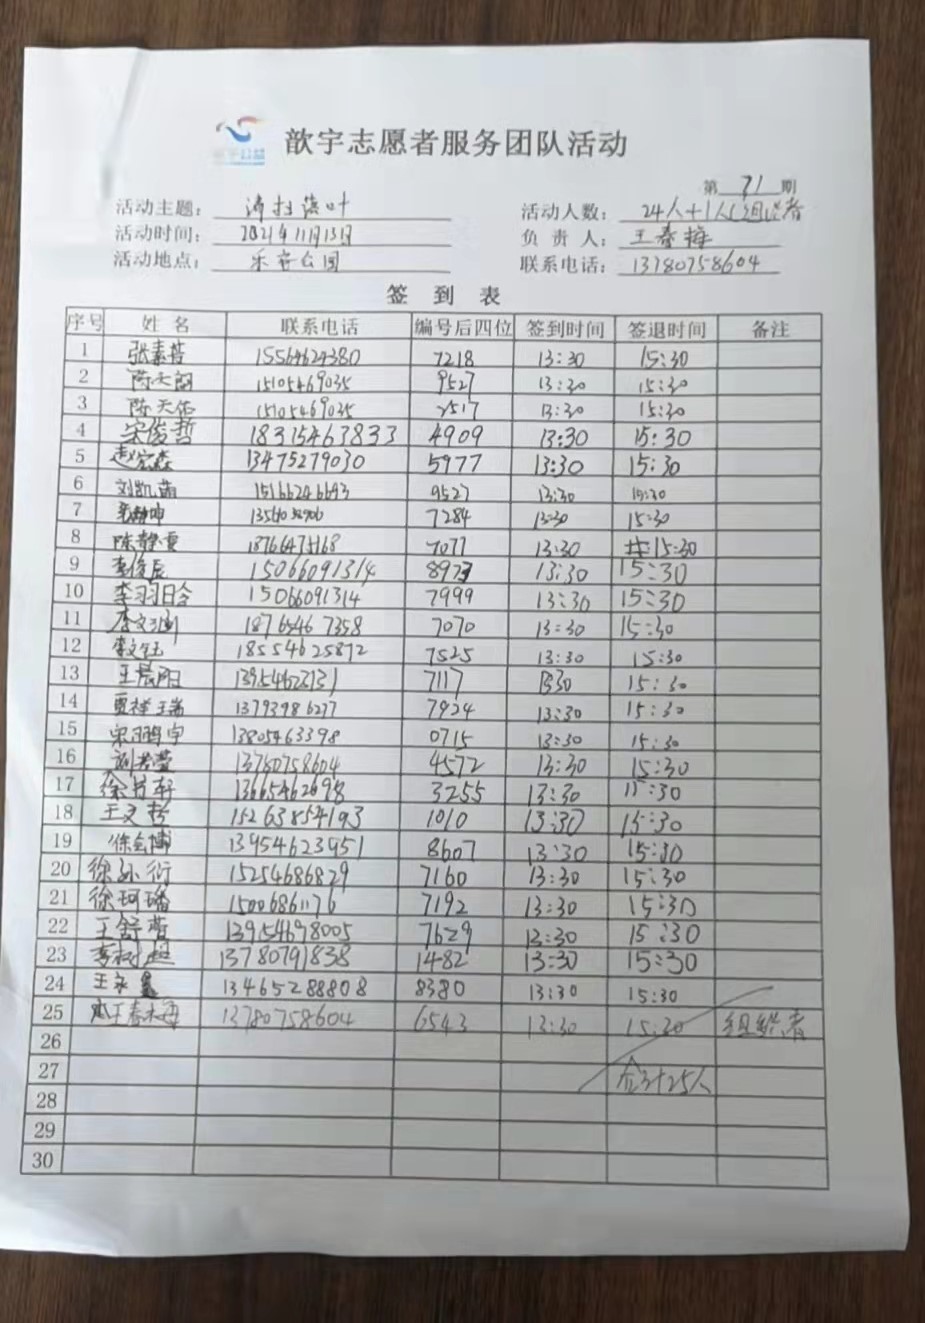 歆宇志愿者服务团队活动
第 71 期
活动主题： 清扫落叶 活动人数： 24人+1人(组织者
活动时间： 2021年11月13日 负责人： 王春梅
活动地点： 乐安公园 联系电话： 13780758604
签到表
序号 姓名 联系电话 编号后四位 签到时间 签退时间 备注
1 15564624380 7218 13:30 15:30
2 陈天阁 15105469035 9527 13:30 15:30
3 陈天佑 15105469035 2517 13:30 15:30
4 宋俊哲 18315463833 4909 13:30 15:30
5 赵宏森 13475279030 5977 13:30 15:30
6 刘凯萌 15166246693 9527 13:30 15:30
7 7284 13:30 15:30
8 陈静雯 18766475168 7077 13:30 15:30
9 李俊辰 15066091314 8973 13:30 15:30
10 李羽晗 15066091314 7999 13:30 15:30
11 李文涵 18765467358 7070 13:30 15:30
12 李文钰 18554625872 7525 13:30 15:30
13 王晨阳 7117 13:30 15:30
14 贾祥瑞 13793986277 7924 13:30 15:30
15 宋鹏宇 13805463398 0715 13:30 15:30
16 刘若萱 13780758604 4572 13:30 15:30
17 13665462698 3255 13:30 15:30
18 王文哲 15263854193 1010 13:30 15:30
19 徐会博 13954623951 8607 13:30 15:30
20 徐孙衍 15254686829 7160 13:30 15:30
21 徐珂璠 15006861176 7192 13:30 15:30
22 王舒蕾 13954698005 7629 13:30 15:30
23 李树超 13780791838 1482 13:30 15:30
24 13465288808 8380 13:30 15:30
25 王春梅 13780758604 6543 13:30 15:30 组织者
26
27 合计25人
28
29
30